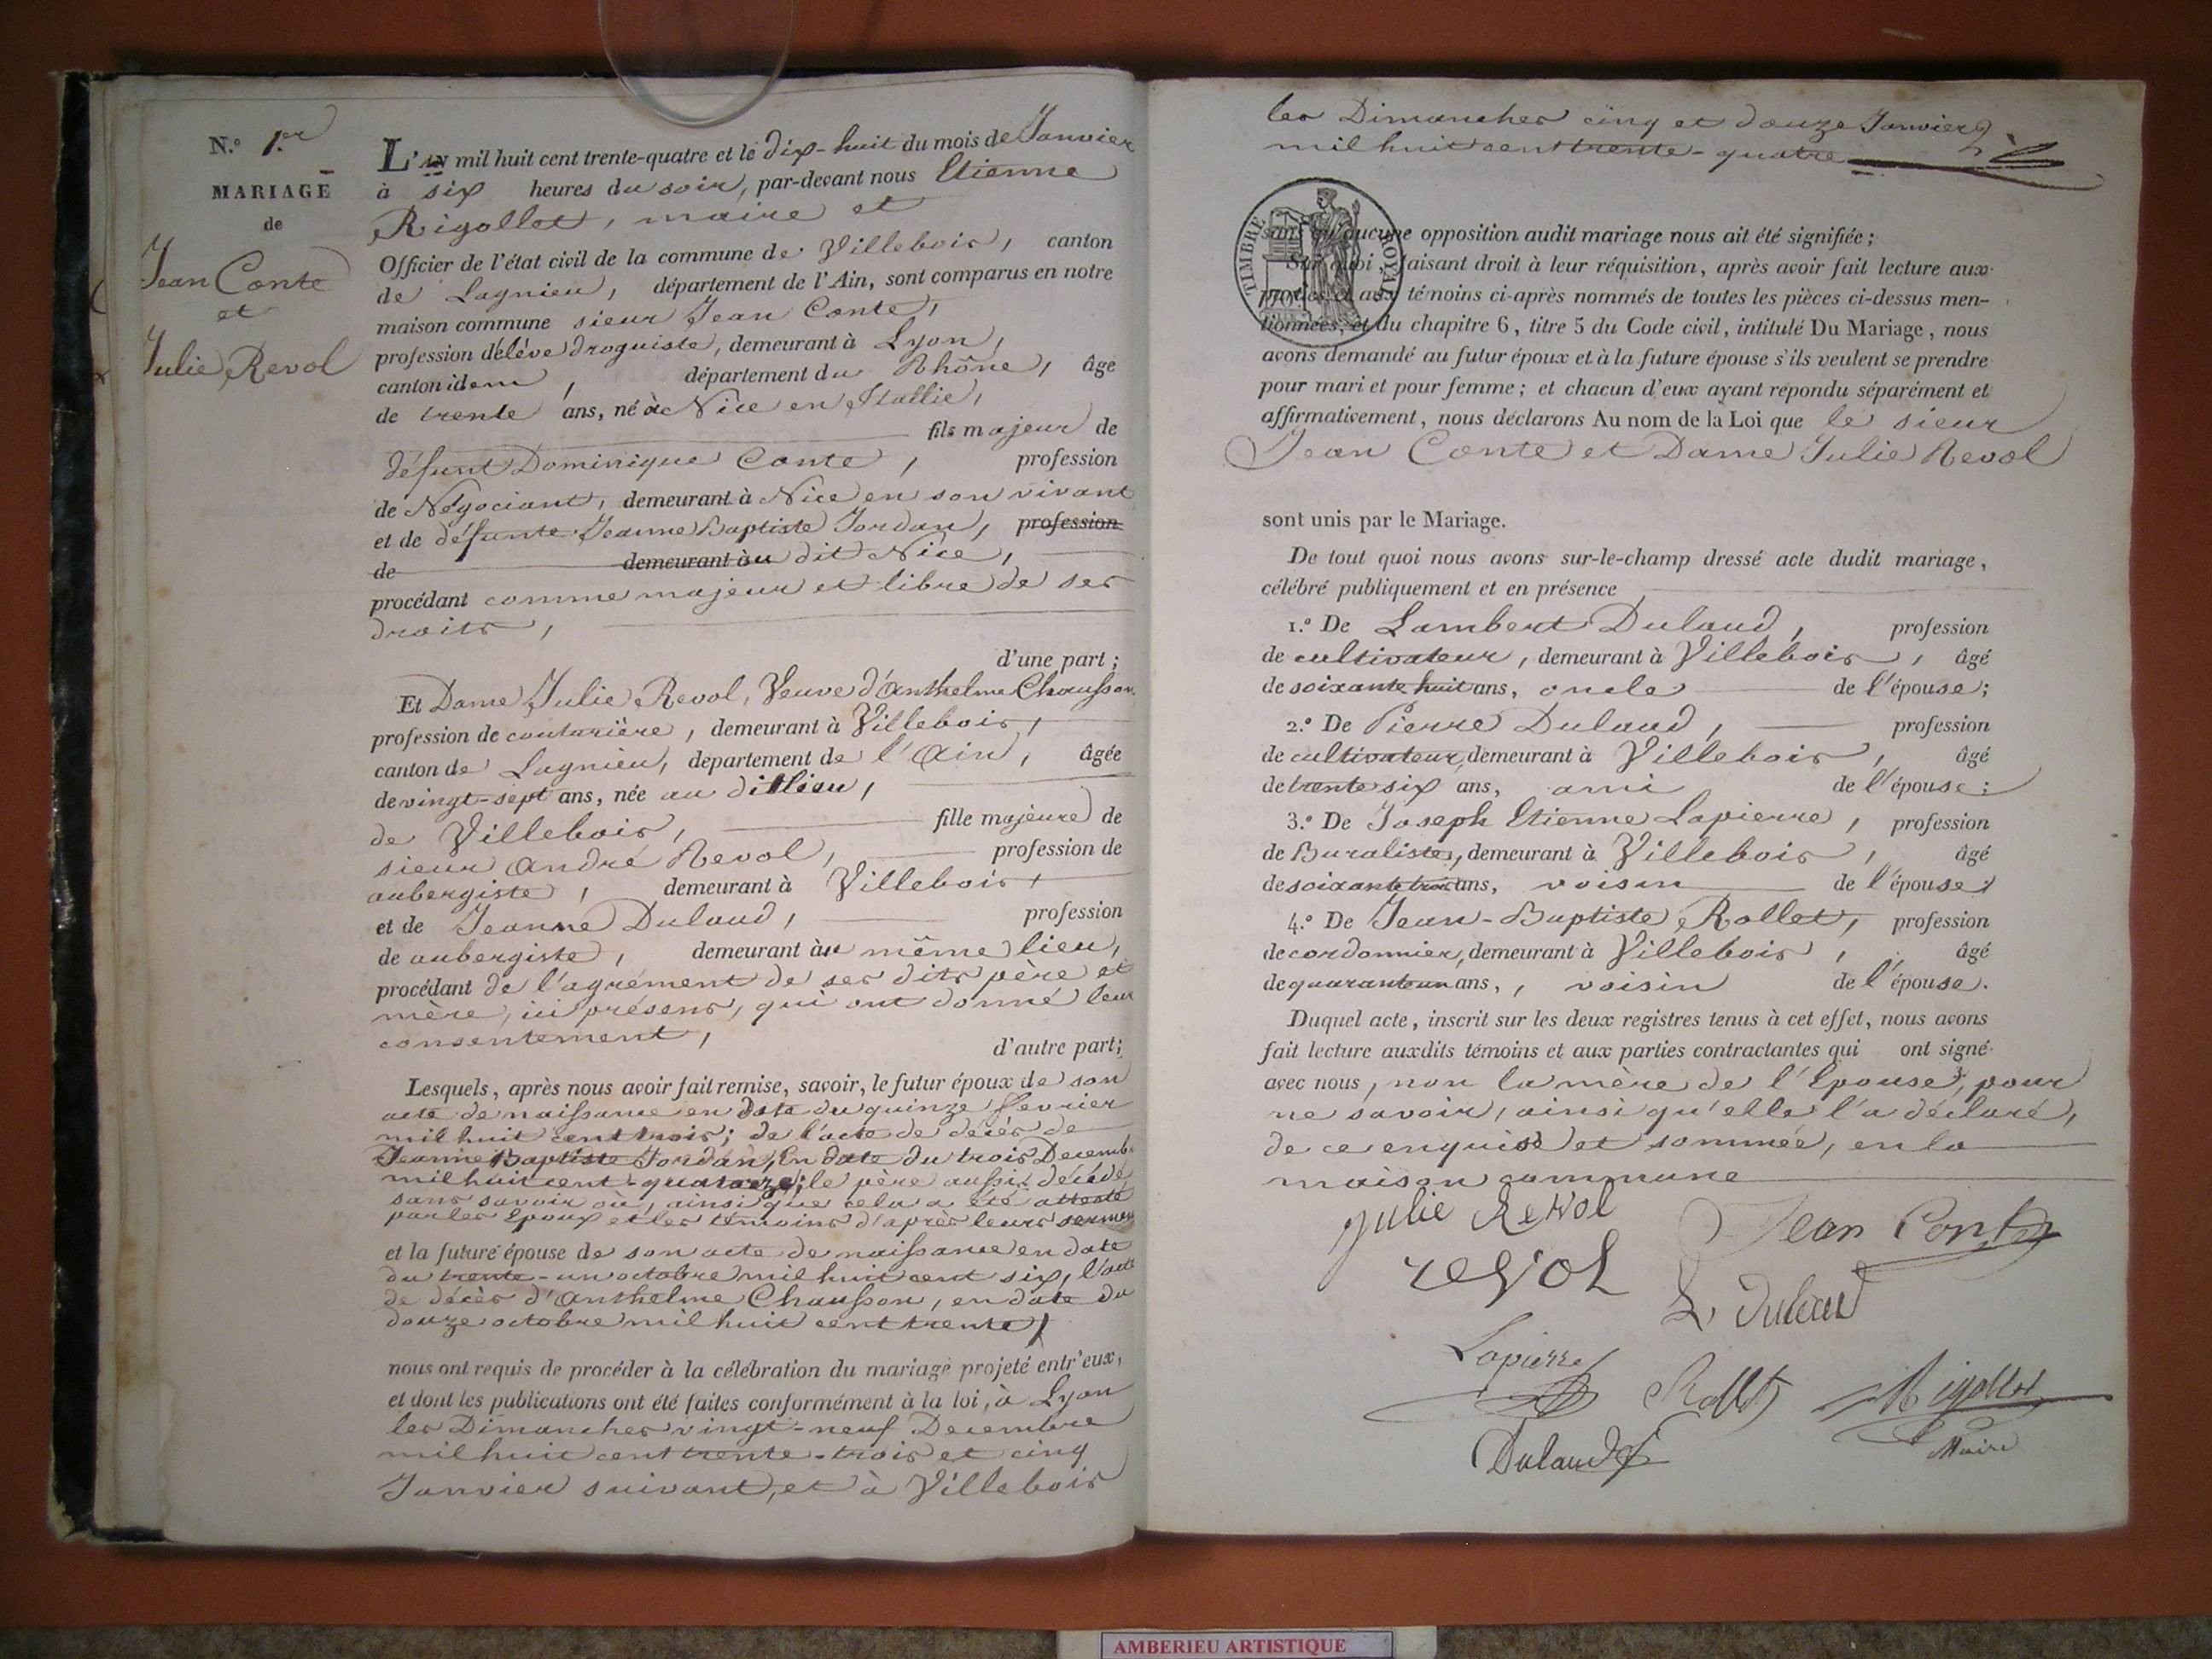 N.º 1.er
MARIAGE
de
Jean Conte
et
Julie Revol
L'AN mil huit cent trente-quatre et le dix-huit du mois de Janvier
à six heures du soir, par-devant nous Etienne
Rigollet, maire et
Officier de l'état civil de la commune de Villebois, canton
de Lagnieu, département de l'Ain, sont comparus en notre
maison commune sieur Jean Conte,
profession d'élève droguiste, demeurant à Lyon,
canton idem, département du Rhône, âgé
de trente ans, né à Nice en Itallie,
fils majeur de
défunt Dominique Conte, profession
de Négociant, demeurant à Nice en son vivant
et de défunte Jeanne Baptiste Jordan, profession
de demeurant àu dit Nice,
procédant comme majeur et libre de ses
droits,
d'une part;
Et Dame Julie Revol, Veuve d'Anthelme Chausson
profession de couturière, demeurant à Villebois,
canton de Lagnieu, département de l'Ain, âgée
de vingt-sept ans, née au dit lieu,
de Villebois, fille majeure de
sieur André Revol, profession de
aubergiste, demeurant à Villebois,
et de Jeanne Dulaud, profession
de aubergiste, demeurant àu même lieu,
procédant de l'agrément de ses dits père et
mère, ici présens, qui ont donné leur
consentement,
d'autre part;
Lesquels, après nous avoir fait remise, savoir, le futur époux de son
acte de naissance en date du quinze fevrier
mil huit cent trois; de l'acte de décès de
Jeanne Baptiste Jordan, En date du trois Decemb.
mil huit cent quatorze; le père aussi décédé
sans savoir où, ainsi que cela a été attesté
par les Epoux et les témoins d'après leurs sermens
et la future épouse de son acte de naissance en date
du trente-un octobre mil huit cent six, l'acte
de décès d'Anthelme Chausson, en date du
douze octobre mil huit cent trente,
nous ont requis de procéder à la célébration du mariage projeté entr'eux,
et dont les publications ont été faites conformément à la loi, à Lyon
les Dimanches vingt-neuf Decembre
mil huit cent trente-trois et cinq
Janvier suivant, et à Villebois
les Dimanches cinq et douze Janvier
mil huit cent trente-quatre
TIMBRE ROYAL
sans qu'aucune opposition audit mariage nous ait été signifiée;
Sur quoi, faisant droit à leur réquisition, après avoir fait lecture aux
parties et aux témoins ci-après nommés de toutes les pièces ci-dessus men-
tionnées, et du chapitre 6, titre 5 du Code civil, intitulé Du Mariage, nous
avons demandé au futur époux et à la future épouse s'ils veulent se prendre
pour mari et pour femme; et chacun d'eux ayant répondu séparément et
affirmativement, nous déclarons Au nom de la Loi que le sieur
Jean Conte et Dame Julie Revol
sont unis par le Mariage.
De tout quoi nous avons sur-le-champ dressé acte dudit mariage,
célébré publiquement et en présence
1.º De Lambert Dulaud, profession
de cultivateur, demeurant à Villebois, âgé
de soixante huit ans, oncle de l'épouse;
2.º De Pierre Dulaud, profession
de cultivateur, demeurant à Villebois, âgé
de trente six ans, ami de l'épouse;
3.º De Joseph Etienne Lapierre, profession
de Buraliste, demeurant à Villebois, âgé
de soixante trois ans, voisin de l'épouse;
4.º De Jean-Baptiste Rollet, profession
de cordonnier, demeurant à Villebois, âgé
de quarante un ans, , voisin de l'épouse.
Duquel acte, inscrit sur les deux registres tenus à cet effet, nous avons
fait lecture auxdits témoins et aux parties contractantes qui ont signé
avec nous, non la mère de l'Epouse, pour
ne savoir, ainsi qu'elle l'a déclaré,
de ce enquise et sommée, en la
maison commune
Julie Revol
Jean Conte
revol
L. Dulaud
Lapierre
Rollet
Rigollet
Maire
Dulaud
AMBERIEU ARTISTIQUE